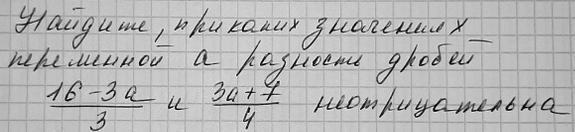 Найдите, при каких значениях
переменной а разность дробей
16-3а/3 и 3а+7/4 неотрицательна